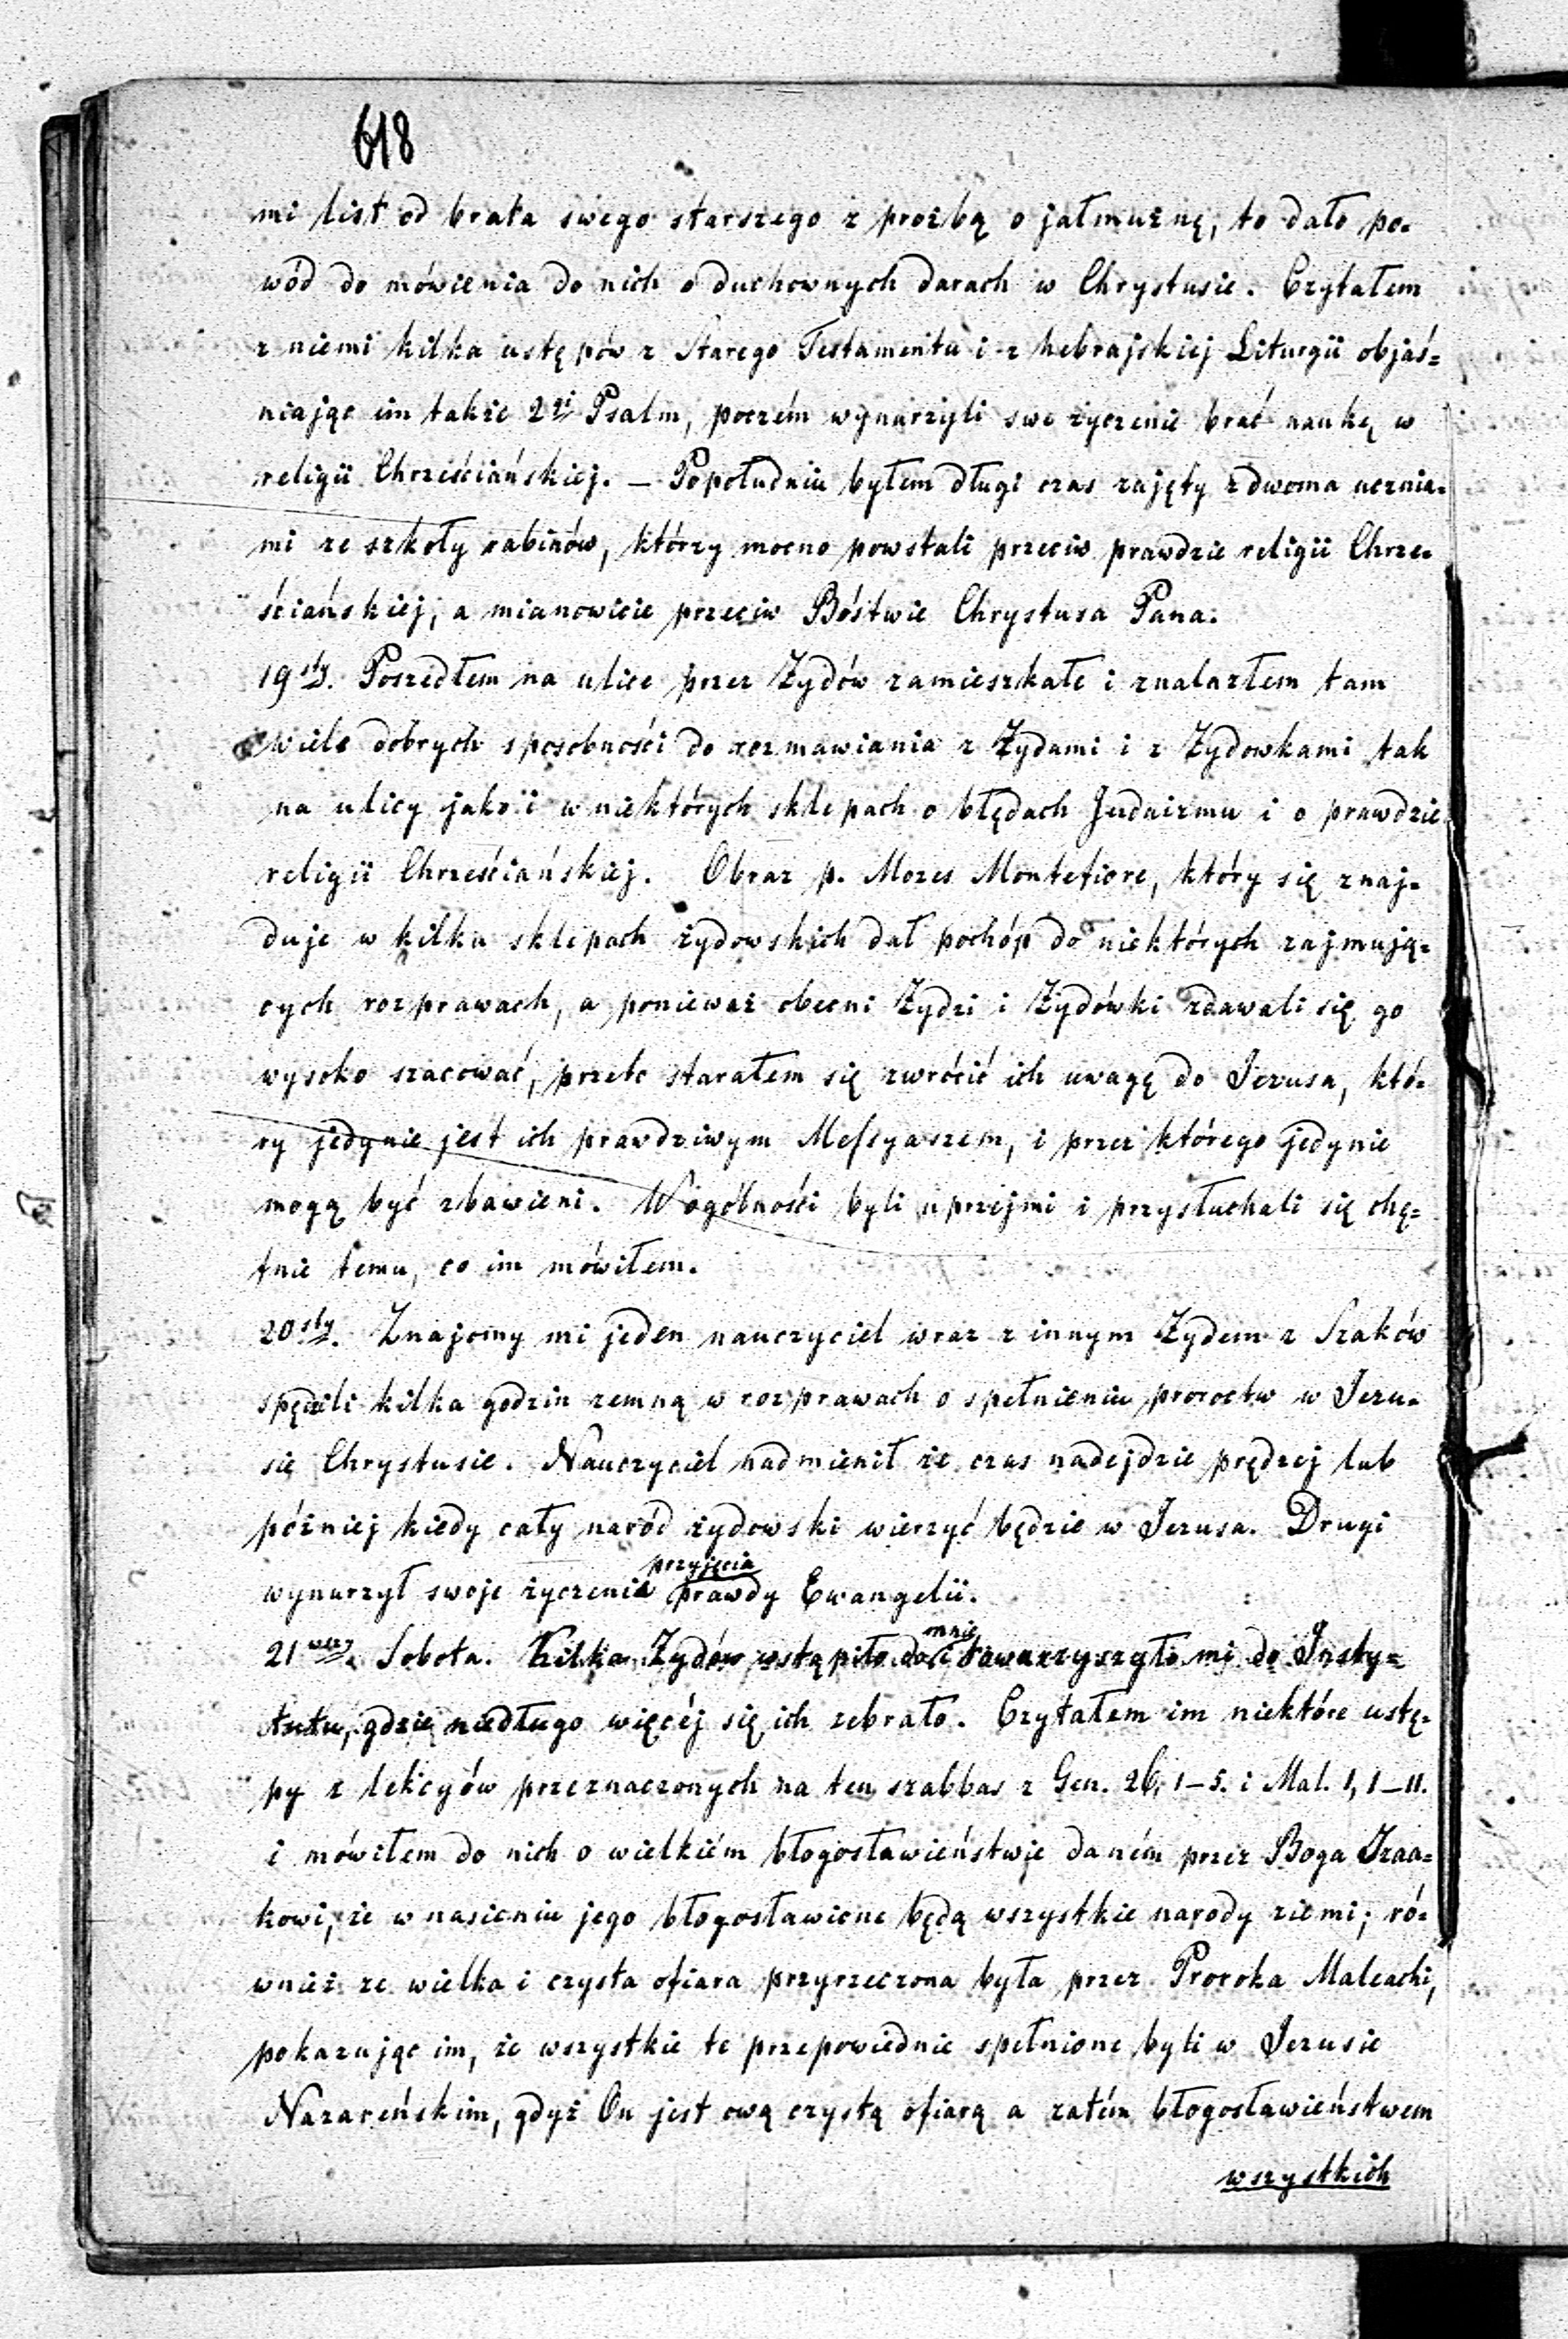 618
mi list od brata swego starszego z prożbą o jałmużnę, to dało po-
wód do mówienia do nich o duchownych darach w Chrystusie. Czytałem
z niemi kilka ustępów z Starego Testamentu i z hebrajskiej Liturgii objaś-
niając im także 2gi Psalm, poczém wynurzyli swe życzenie brać naukę w
religii Chrześciańskiej. — Popołudniu byłem długi czas zajęty z dwoma ucznia-
mi ze szkoły rabinów, którzy mocno powstali przeciw prawdzie religii Chrze-
ściańskiej, a mianowicie przeciw Bóstwie Chrystusa Pana.
19sty. Poszedłem na ulice przez Żydów zamieszkałe i znalazłem tam
wiele dobrych sposobności do rozmawiania z Żydami i z Żydowkami tak
na ulicy jako i w niektórych sklepach o błędach Judaizmu i o prawdzie
religii Chrześciańskiej. Obraz p. Mozes Montefiore, który się znaj-
duje w kilku sklepach żydowskich dał pochóp do niektórych zajmują-
cych rozprawach, a ponieważ obecni Żydzi i Żydówki zdawali się go
wysoko szacować, przeto starałem się zwrócić ich uwagę do Jezusa, któ-
ry jedynie jest ich prawdziwym Messyaszem, i przez którego jedynie
mogą być zbawieni. W ogólności byli uprzejmi i przysłuchali się chę-
tnie temu, co im mówiłem.
20sty. Znajomy mi jeden nauczyciel wraz z innym Żydem z Szaków
spędzili kilka godzin zemną w rozprawach o spełnieniu proroctw w Jezu-
się Chrystusie. Nauczyciel nadmienił że czas nadejdzie prędzej lub
później kiedy cały naród żydowski wierzyć będzie w Jezusa. Drugi
wynurzył swoje życzenie przyjęcia prawdy Ewangelii.
21wszy. Sobota. Kilka Żydów wstąpiło do mnie i towarzyszyło mi do Insty-
tutu, gdzie niedługo więcéj się ich zebrało. Czytałem im niektóre ustę-
py z lekcyów przeznaczonych na ten szabbas z Gen. 26, 1–5. i Mal. 1, 1–11.
i mówiłem do nich o wielkiém błogosławieństwie daném przez Boga Izaa-
kowi, że w nasieniu jego błogosławione będą wszystkie narody ziemi; ró-
wnież ze wielka i czysta ofiara przyrzeczona była przez Proroka Maleachi,
pokazując im, że wszystkie te przepowiednie spełnione byli w Jezusie
Nazareńskim, gdyż On jest ową czystą ofiarą a zatém błogosławieństwem
wszystkich